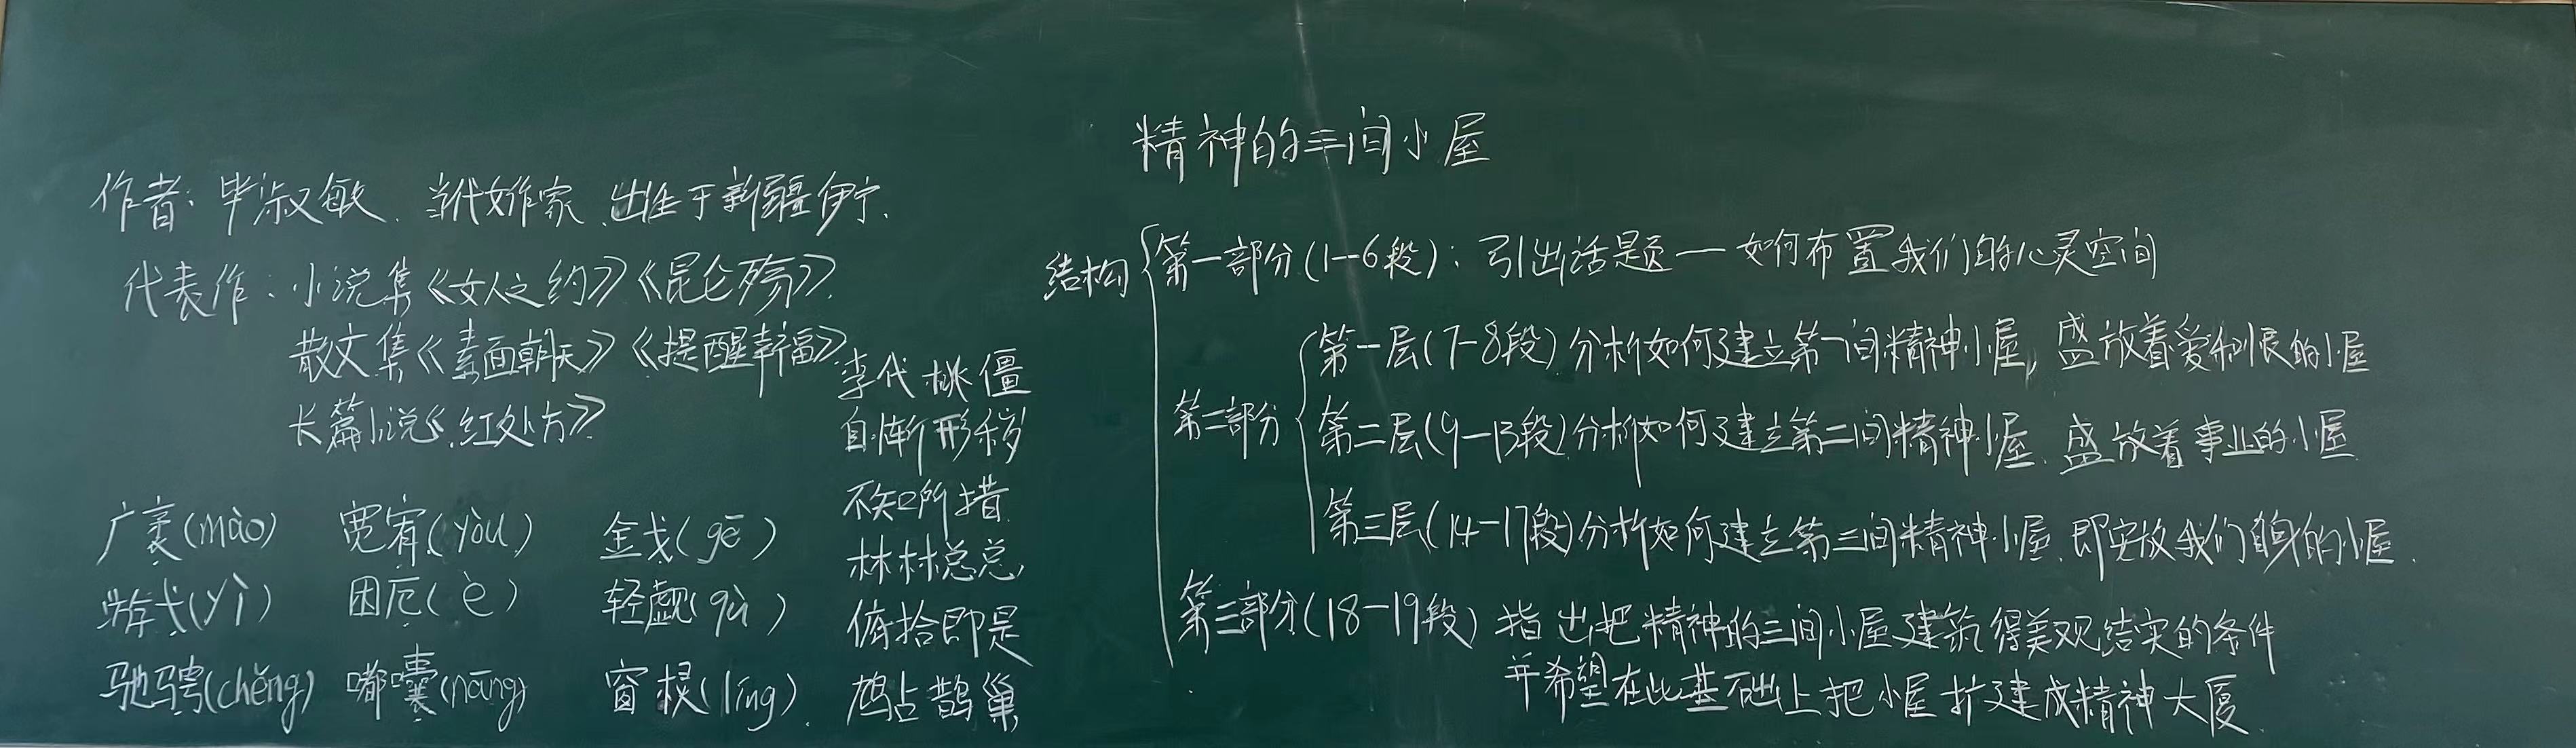 精神的三间小屋
作者:毕淑敏、当代女作家、出生于新疆伊宁.
代表作:小说集《女人之约》《昆仑殇》.
散文集《素面朝天》《提醒幸福》.
长篇小说《红处方》
广袤(mào) 宽宥(yòu) 金戈(gē)
游弋(yì) 困厄(è) 轻觑(qù)
驰骋(chěng) 嘟囔(nāng) 窗棂(líng)
李代桃僵
自惭形秽
不知所措
林林总总
俯拾即是
鸠占鹊巢
结构
第一部分(1-6段):引出话题—如何布置我们的心灵空间
第二部分
第一层(7-8段)分析如何建立第一间精神小屋,盛放着爱和恨的小屋
第二层(9-13段)分析如何建立第二间精神小屋.盛放着事业的小屋
第三层(14-17段)分析如何建立第三间精神小屋.即安放我们自身的小屋.
第三部分(18-19段)指出把精神的三间小屋建筑得美观结实的条件
并希望在此基础上把小屋扩建成精神大厦.